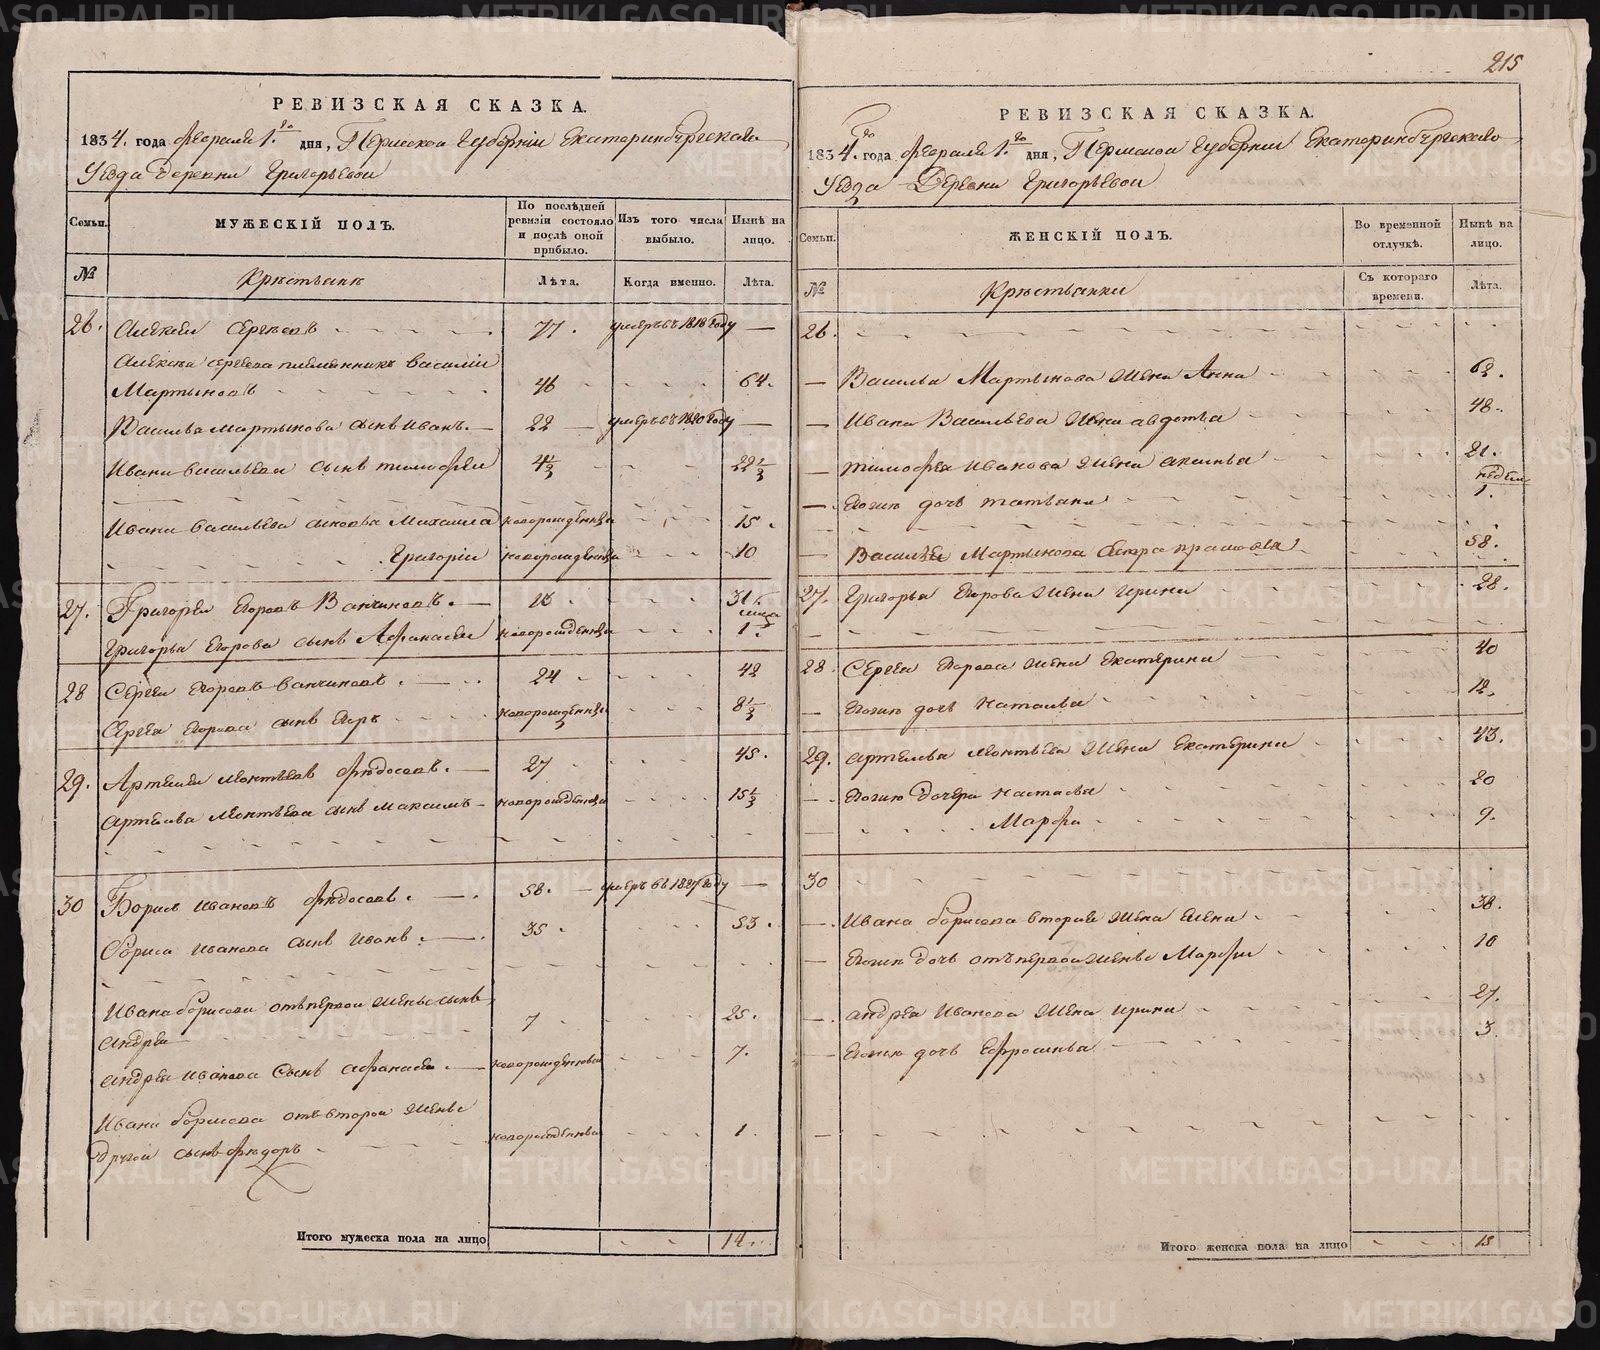 215
РЕВИЗСКАЯ СКАЗКА.
1834. года февраля 1го дня, Пермской Губернии Екатеринбургскаго
Уезда деревни Григорьевой
Семьи.
МУЖЕСКІЙ ПОЛЪ.
По послѣдней ревизіи состояло и послѣ оной прибыло.
Изъ того числа выбыло.
Нынѣ на лицо.
№
Крестьяне
Лѣта.
Когда именно.
Лѣта.
26. Алексеи Сергеевъ 77. умеръ въ 1818 году —
Алексѣя Сергеева племянникъ Василіи
Мартыновъ 46 64.
Василья Мартынова сынъ Иванъ. 22 — умеръ въ 1820 году —
Ивана Васильева сынъ Тимофеи 4½ 22½
Ивана Васильева сыновья Михаила новорожденныи 15.
Григоріи новорожденныи 10
27. Григореи Егоровъ Ванчиковъ. 13 31
Григорья Егорова сынъ Афанасеи новорожденныи 1
28 Сергеи Егоровъ Ванчиковъ. 24 42
Сергея Егорова сынъ Егоръ новорожденныи 8½
29. Артемеи Леонтьевъ Федосовъ. 27 45.
Артемья Леонтьева сынъ Максимъ новорожденныи 15½
30 Борисъ Ивановъ Федосовъ. 58. — умеръ въ 1827 году —
Бориса Иванова сынъ Иванъ. 35 53.
Ивана Борисова отъ первой жены сынъ
Андреи 7 25.
Андрея Иванова сынъ Афанасеи. новорожденныи 7.
Ивана Борисова отъ второй жены
другой сынъ Федоръ новорожденныи 1.
Итого мужеска пола на лицо 14.
РЕВИЗСКАЯ СКАЗКА.
1834. года февраля 1го дня, Пермской Губернии Екатеринбургскаго
Уезда Деревни Григорьевой
Семьи.
ЖЕНСКІЙ ПОЛЪ.
Во временной отлучкѣ.
Нынѣ на лицо.
№
Крестьянки
Съ котораго времени.
Лѣта.
26.
— Василья Мартынова жена Анна 62.
— Ивана Васильева жена Авдотья 48.
— Тимофея Иванова жена Акинья 21.
недели
— Евоная дочь Татьяна 1.
— Василья Мартынова сестра Прасковья 58.
27. Григорья Егорова жена Ирина 28.
28. Сергея Егорова жена Екатерина 40
— Евоная дочь Наталья 12.
29. Артемья Леонтьева жена Екатерина 43.
— Евоная дочери Настасья 20
— Марфа 9.
30
— Ивана Борисова вторая жена Елена 38.
— Евоная дочь отъ первой жены Марфа 10
— Андрея Иванова жена Ирина 27.
— Евоная дочь Ефросинья 3.
Итого женска пола на лицо 15
METRIKI.GASO-URAL.RU